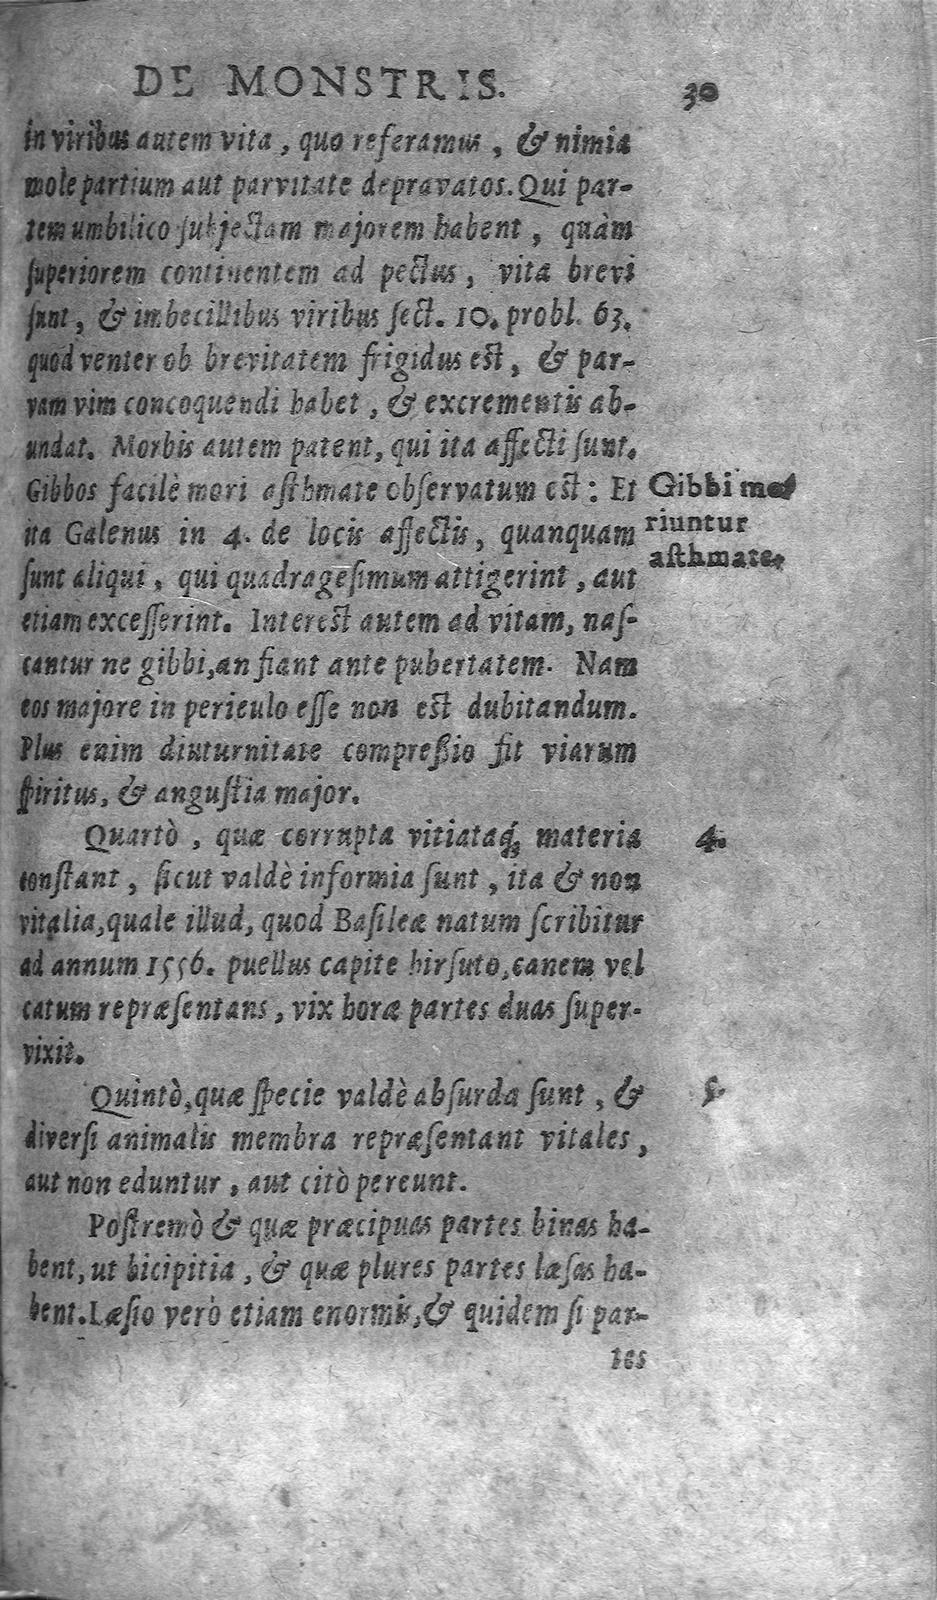 DE MONSTRIS. 30
in viribus autem vita, quo referamus, & nimia
mole partium aut parvitate depravatos. Qui par-
tem umbilico subjectam majorem habent, quàm
superiorem continentem ad pectus, vita brevi
sunt, & imbecillibus viribus sect. 10. probl. 63.
quod venter ob brevitatem frigidus est, & par-
vam vim concoquendi habet, & excrementis ab-
undat. Morbis autem patent, qui ita affecti sunt.
Gibbos facilè mori asthmate observatum est: Et
ita Galenus in 4. de locis affectis, quanquam
sunt aliqui, qui quadragesimum attigerint, aut
etiam excesserint. Interest autem ad vitam, nas-
cantur ne gibbi, an fiant ante pubertatem. Nam
eos majore in periculo esse non est dubitandum.
Plus enim diuturnitate compreßio fit viarum
spiritus, & angustia major.
Gibbi mo-
riuntur
asthmate.
Quartò, quæ corrupta vitiataq́; materia
constant, sicut valdè informia sunt, ita & non
vitalia, quale illud, quod Basileæ natum scribitur
ad annum 1556. puellus capite hirsuto, canem vel
catum repræsentans, vix horæ partes duas super-
vixit.
4.
Quintò, quæ specie valdè absurda sunt, &
diversi animalis membra repræsentant vitales,
aut non eduntur, aut citò pereunt.
5.
Postremò & quæ præcipuas partes binas ha-
bent, ut bicipitia, & quæ plures partes læsas ha-
bent. Læsio verò etiam enormis, & quidem si par-
tes